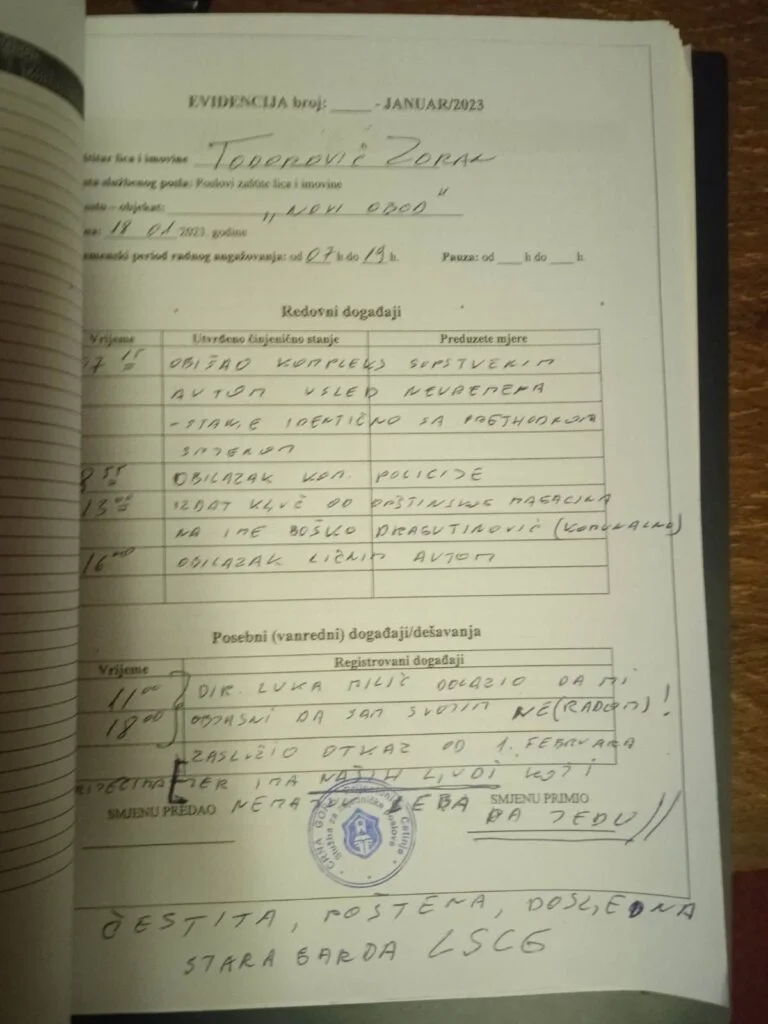 EVIDENCIJA broj: _____ - JANUAR/2023
štitar lica i imovine TODOROVIĆ ZORAN
službenog posla: Poslovi zaštite lica i imovine
objekat: "NOVI OBOD"
18 01 2023. godine
smenski period radnog angažovanja: od 07 h do 19 h. Pauza: od ____ h do ____ h.
Redovni događaji
Vrijeme Utvrđeno činjenično stanje Preduzete mjere
7 15 OBIŠAO KOMPLEKS SOPSTVENIM
AVTOM USLED NEVREMENA
- STANJE IDENTIČNO SA PRETHODNOM
SMJENOM
8 55 OBILAZAK KOM. POLICIJE
13 00 IZDAT KLJUČ OD OPŠTINSKOG MAGACINA
NA IME BOŠKO DRAGUTINOVIĆ (KOMUNALNO)
16 00 OBILAZAK LIČNIM AVTOM
Posebni (vanredni) događaji/dešavanja
Vrijeme Registrovani događaji
11 00 DIR. LUKA MILIĆ DOLAZIO DA MI
18 00 OBJASNI DA SAM SVOJIM NE(RADOM)!
ZASLUŽIO OTKAZ OD 1. FEBRUARA
JER IMA NAŠIH LJUDI KOJI
NEMAJU LEBA DA JEDU
SMJENU PREDAO SMJENU PRIMIO
CRNA GORA
Cetinje
ČESTITA, POŠTENA, DOSLJEDNA
STARA GARDA LSCG